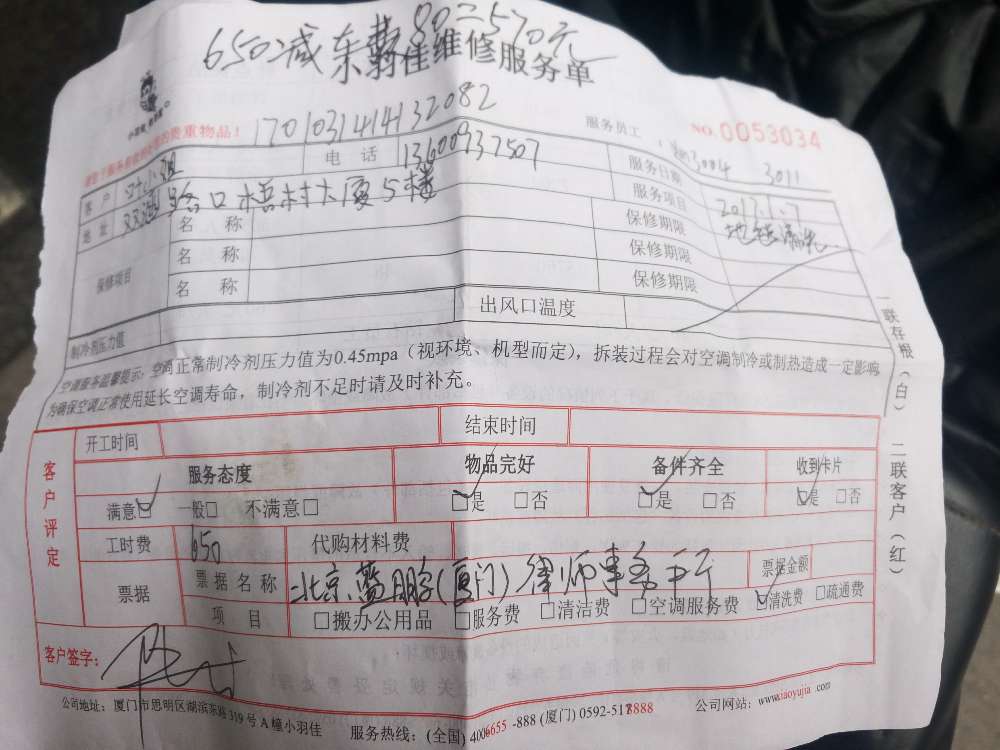 650减车费80=570元
小羽佳维修服务单
小羽佳
的贵重物品！
1701031414132082
服务员工 3004 3011
NO.0053034
客户 小姐 电话 13600937507 服务日期 2017.1.7
地址 路口梧村大厦5楼 服务项目 地毯清洗
保修项目
名称 保修期限
名称 保修期限
名称 保修期限
制冷剂压力值 出风口温度
空调服务温馨提示：空调正常制冷剂压力值为0.45mpa（视环境、机型而定），拆装过程会对空调制冷或制热造成一定影响
为确保空调正常使用延长空调寿命，制冷剂不足时请及时补充。
一联存根（白） 二联客户（红）
客户评定
开工时间 结束时间
服务态度 物品完好 备件齐全 收到卡片
满意☑ 一般□ 不满意□ ☑是 □否 ☑是 □否 ☑是 □否
工时费 650 代购材料费
票据 票据名称 北京蓝鹏(厦门)律师事务所 票据金额
项目 □搬办公用品 □服务费 □清洁费 □空调服务费 ☑清洗费 □疏通费
客户签字：
公司地址：厦门市思明区湖滨东路319号A幢小羽佳 服务热线：(全国) 4006655-888 (厦门) 0592-5178888 公司网站：www.xiaoyujia.com